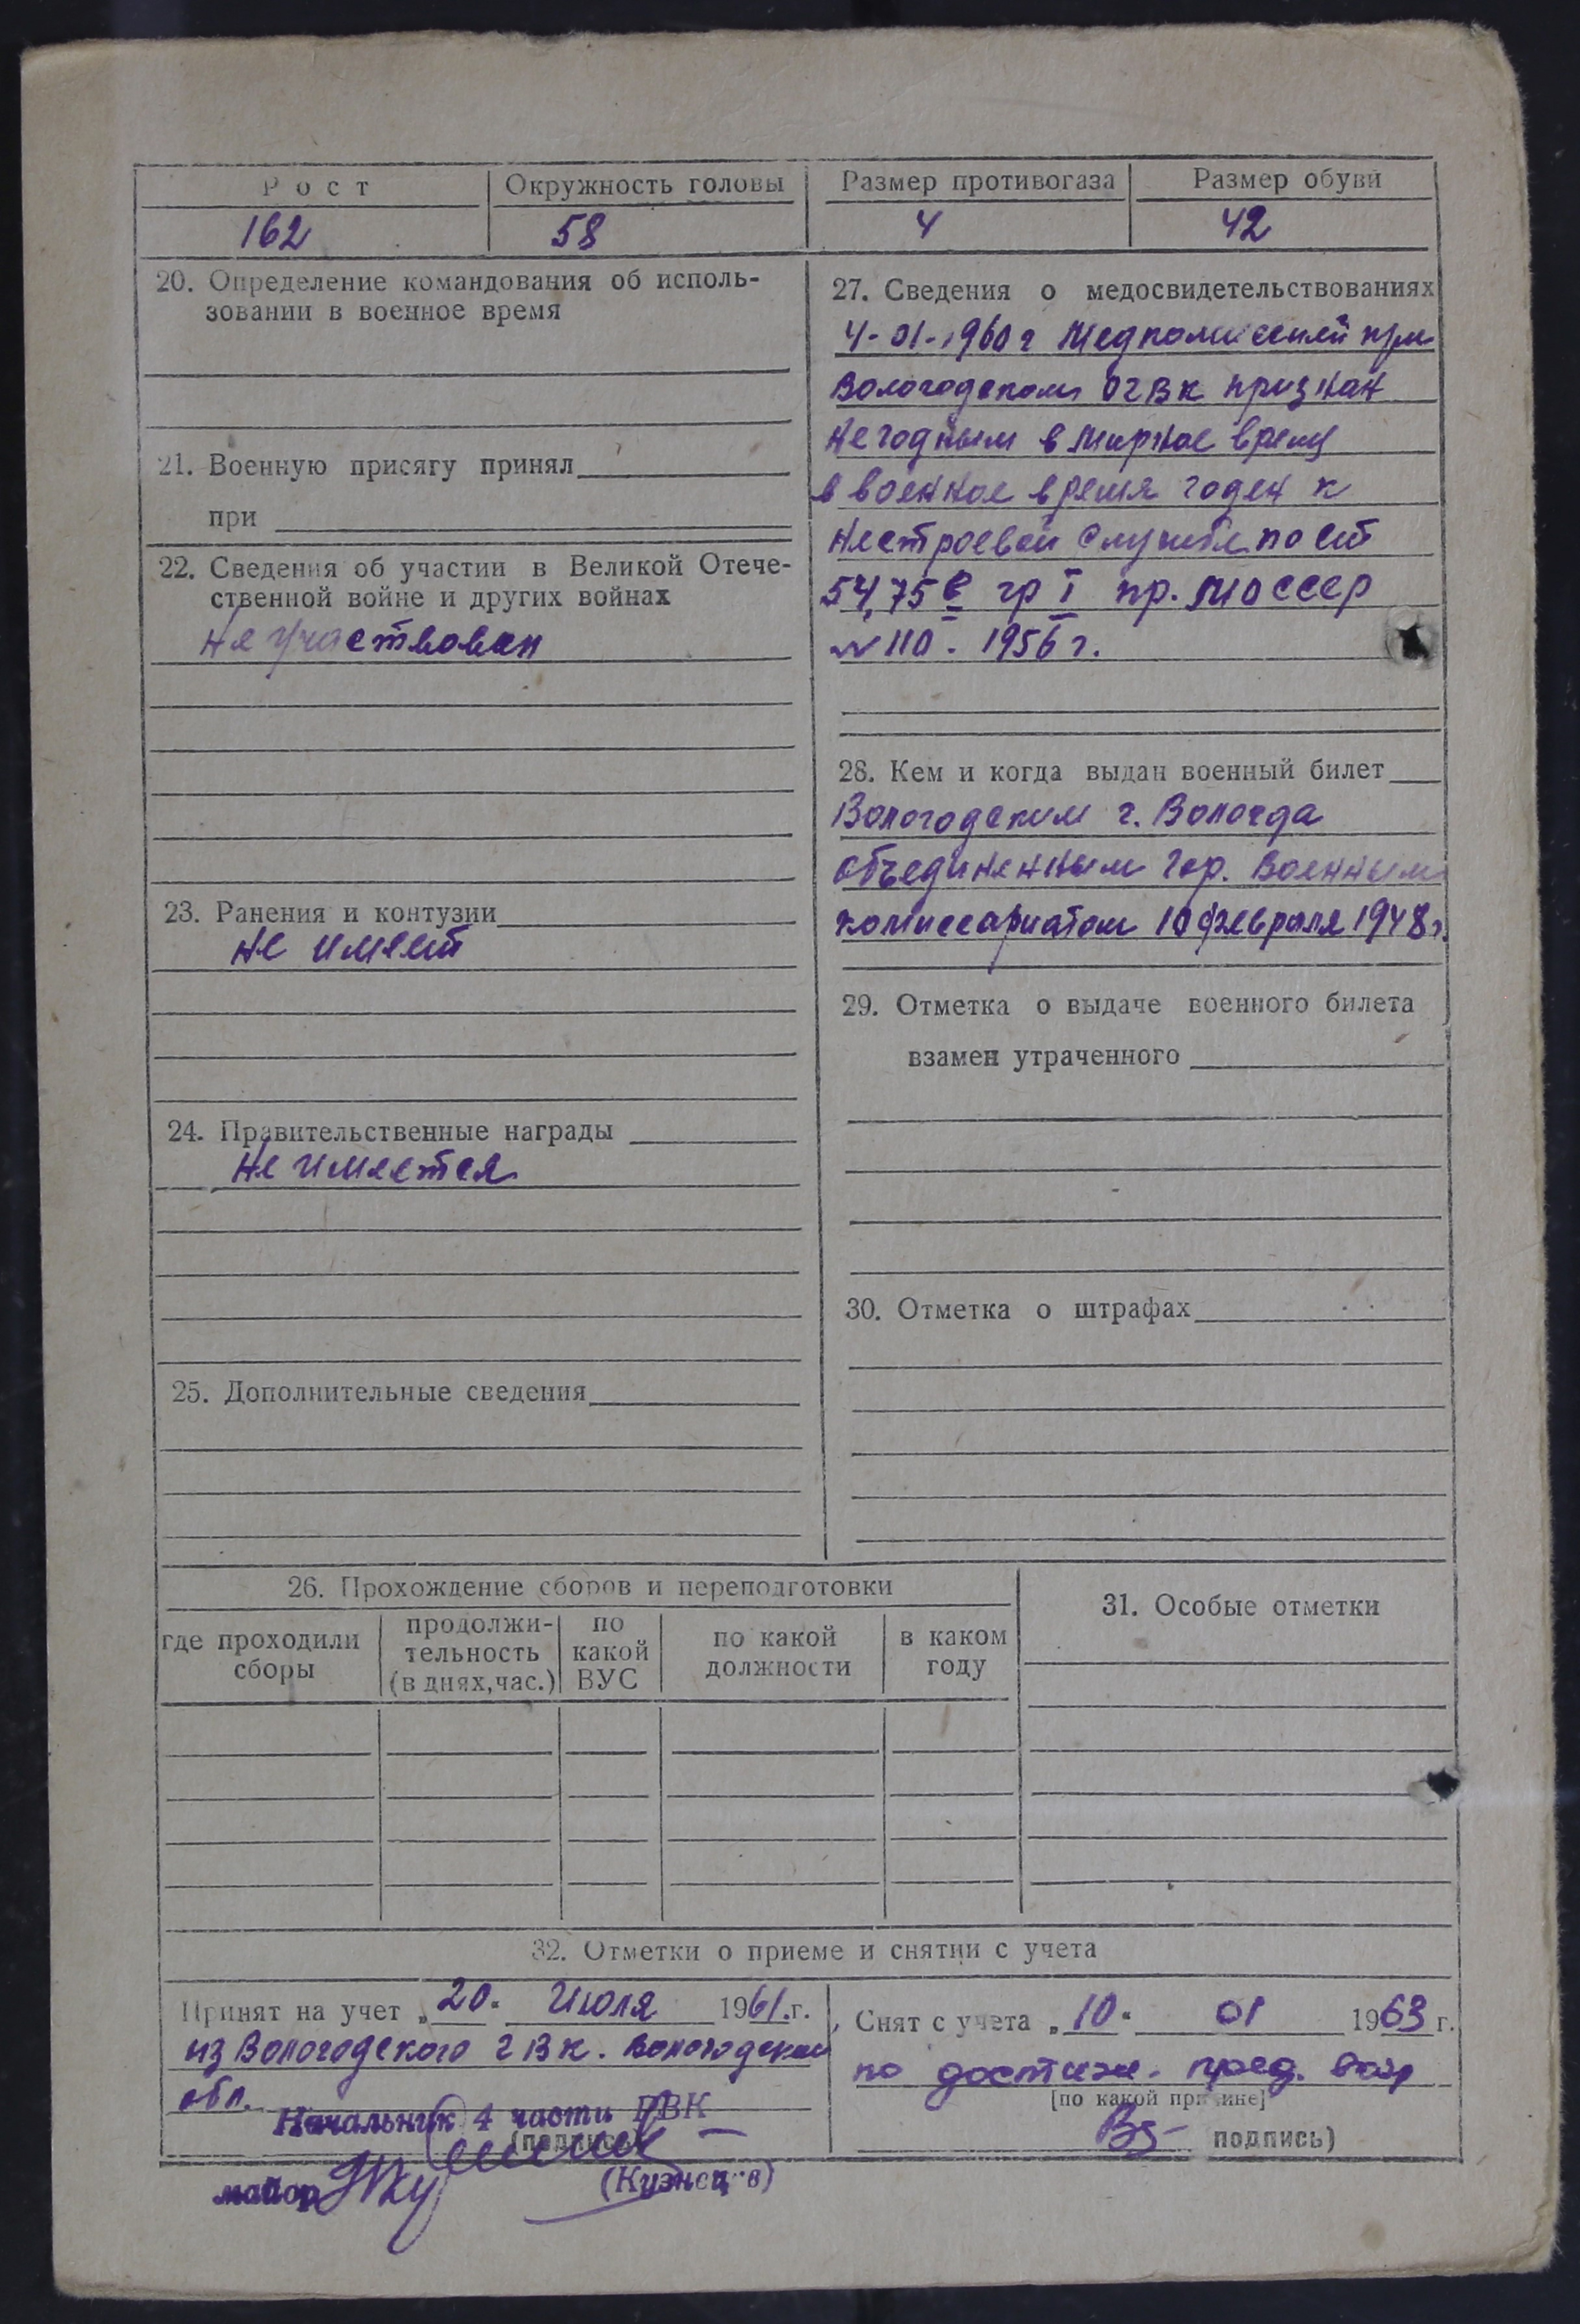 Рост Окружность головы Размер противогаза Размер обуви
162 58 4 42
20. Определение командования об исполь-
зовании в военное время
21. Военную присягу принял
при
22. Сведения об участии в Великой Отече-
ственной войне и других войнах
Не участвовал
23. Ранения и контузии
не имеет
24. Правительственные награды
Не имеется
25. Дополнительные сведения
27. Сведения о медосвидетельствованиях
4-01-1960 г Медкомиссией при
Вологодском ОГВК признан
Негодным в мирное время
в военное время годен к
нестроевой службе по ст
54,75 в гр I пр. МО СССР
№ 110. 1956 г.
28. Кем и когда выдан военный билет
Вологодским г. Вологда
объединенным Гор. Военным
комиссариатом 10 февраля 1948 г.
29. Отметка о выдаче военного билета
взамен утраченного
30. Отметка о штрафах
26. Прохождение сборов и переподготовки
где проходили сборы
продолжи-
тельность
(в днях, час.)
по
какой
ВУС
по какой
должности
в каком
году
31. Особые отметки
32. Отметки о приеме и снятии с учета
Принят на учет „20" Июля 1961 г.
из Вологодского ГВК. Вологодской
обл.
Начальник 4 части ГВК
(подпись)
майор (Кузнецов)
Снят с учета „10" 01 1963 г.
по достиж. пред. возр
[по какой причине]
подпись)